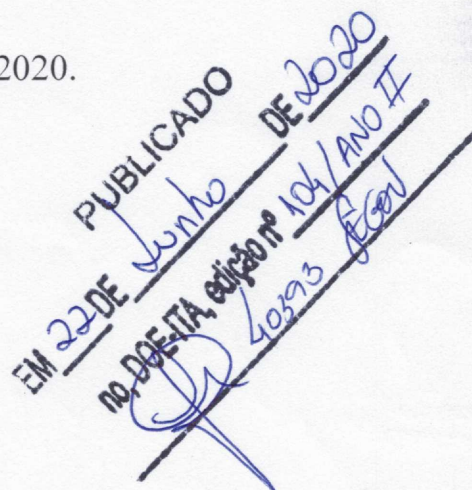 2020.
PUBLICADO
EM 22 DE Junho DE 2020
no, DOE-ITA, edição nº 104/ANO II
40393